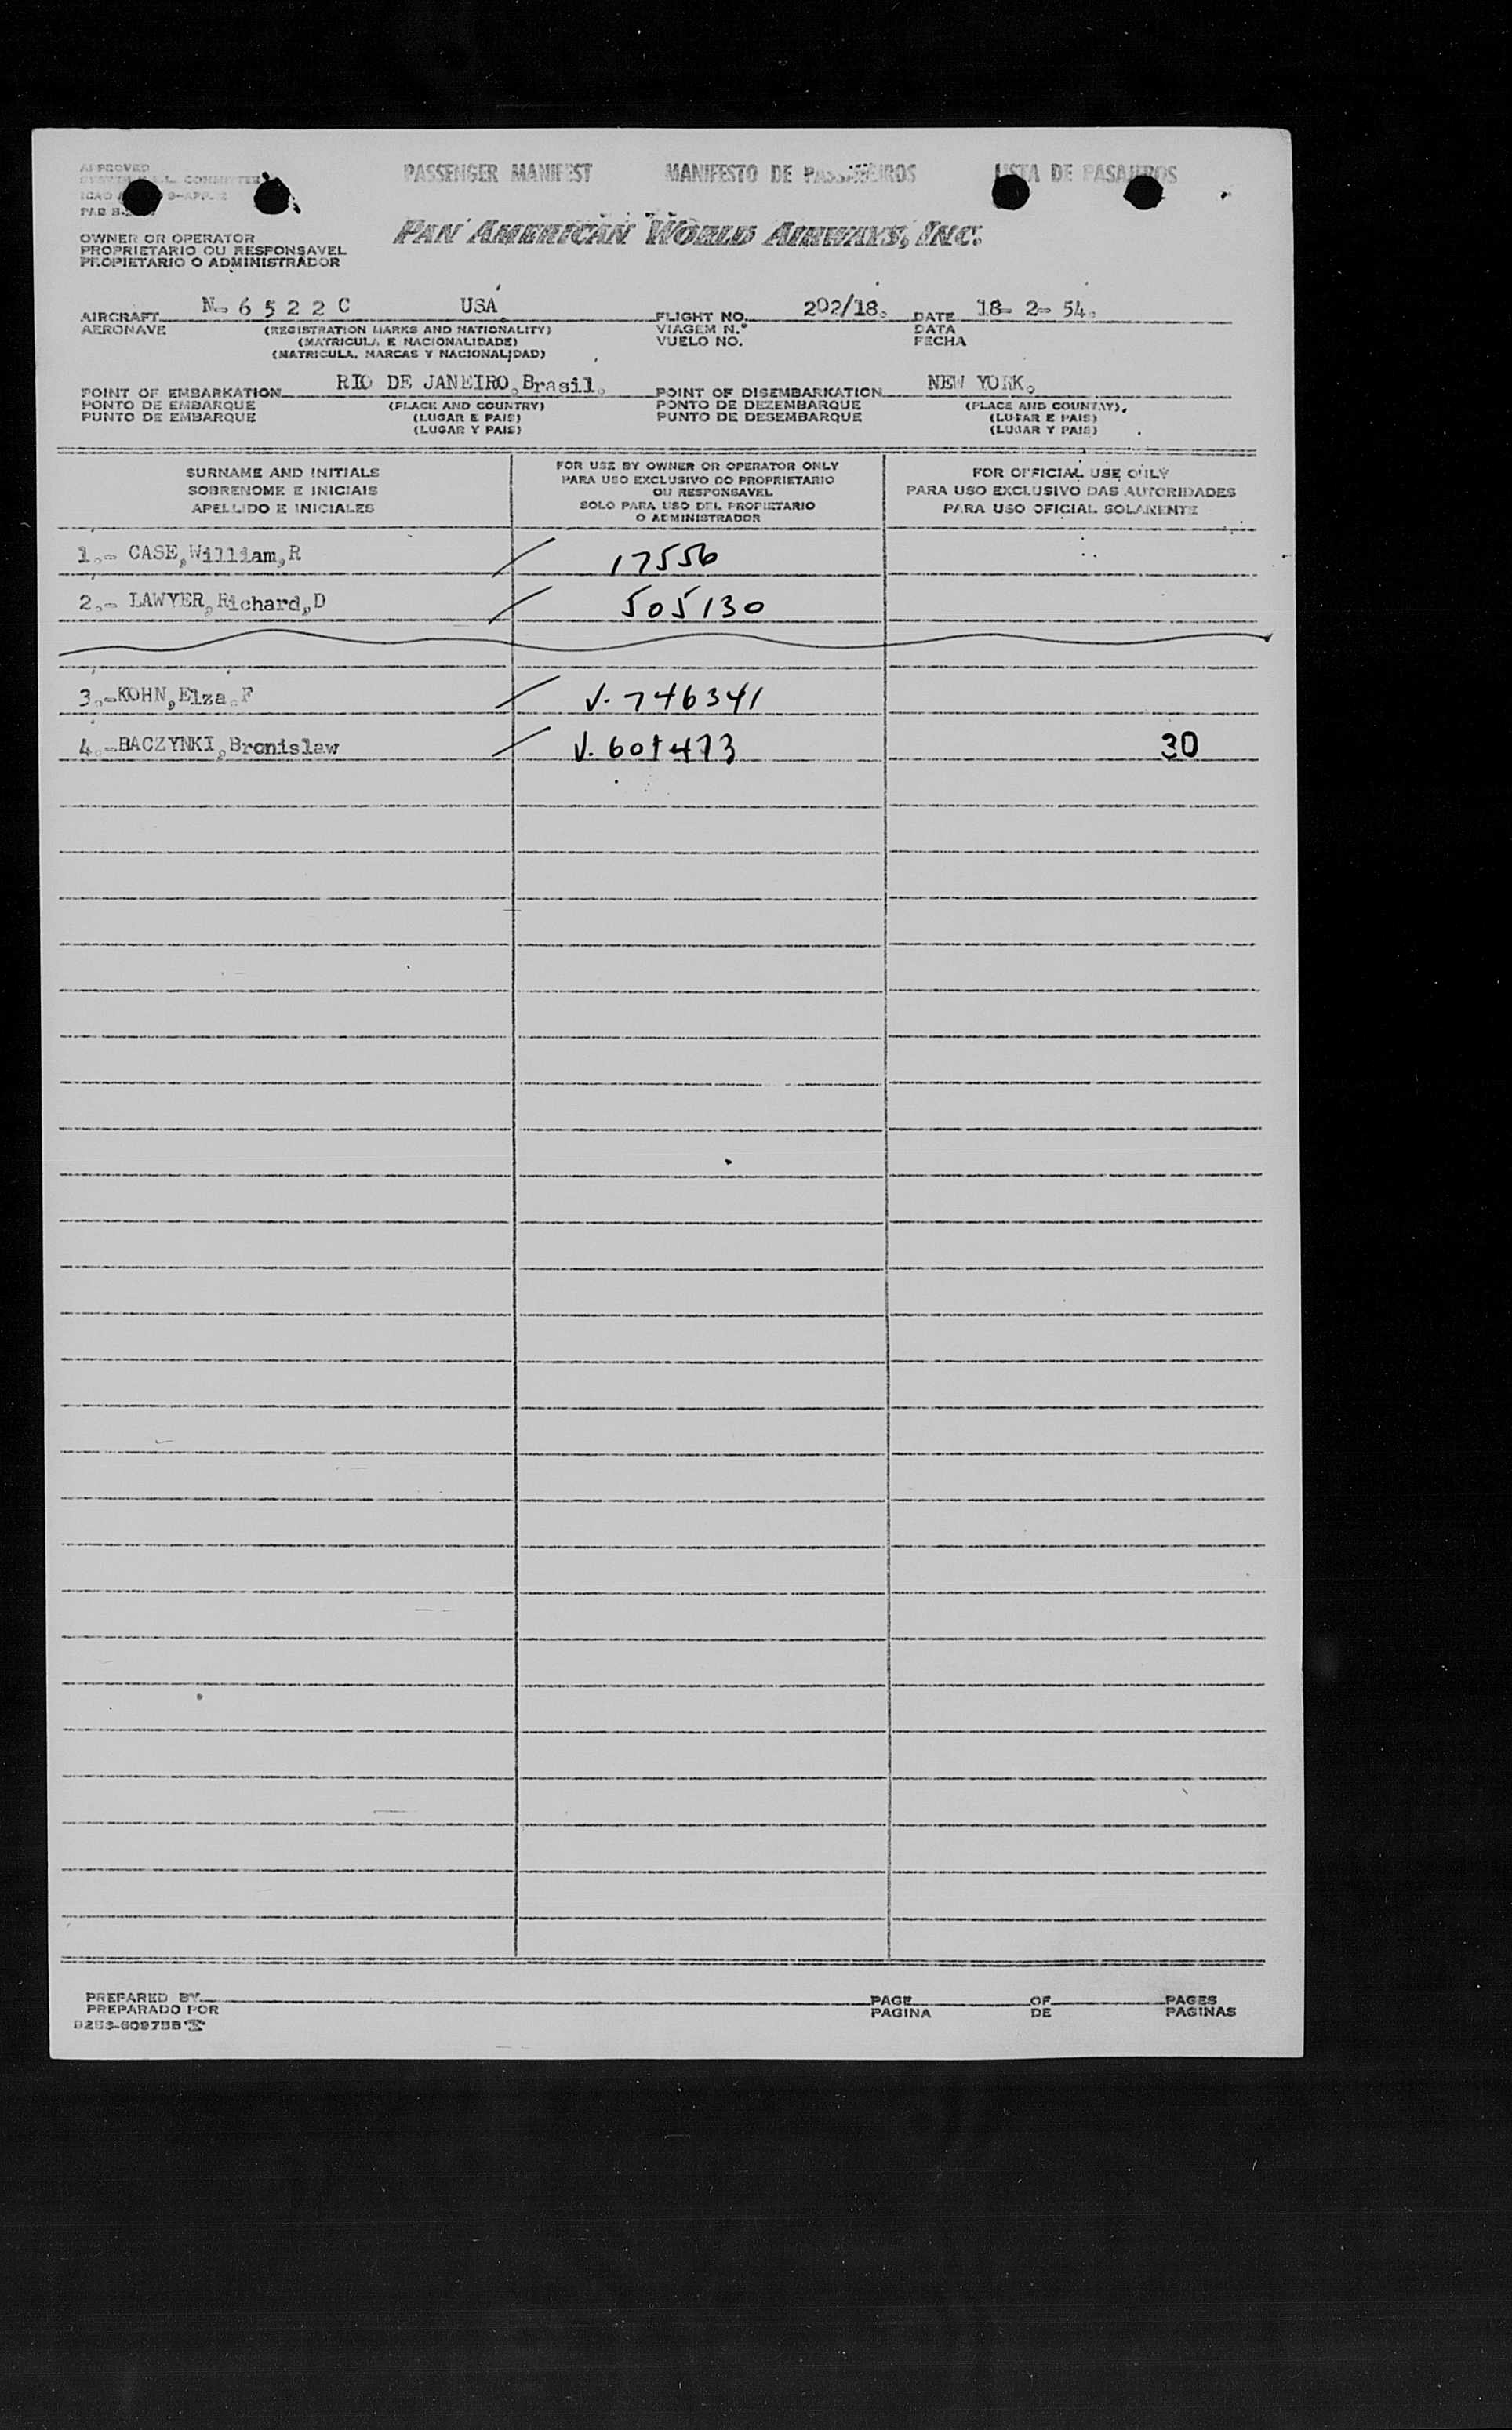 APPROVED
COMMITTEE
PASSENGER MANIFEST MANIFESTO DE PASSAGEIROS LISTA DE PASAJEROS
PAN AMERICAN WORLD AIRWAYS, INC.
OWNER OR OPERATOR
PROPRIETARIO OU RESPONSAVEL
PROPIETARIO O ADMINISTRADOR
AIRCRAFT N- 6 5 2 2 C USA. FLIGHT NO. 202/18. DATE 18- 2- 54.
AERONAVE (REGISTRATION MARKS AND NATIONALITY) VIAGEM N.º DATA
(MATRICULA E NACIONALIDADE) VUELO NO. FECHA
(MATRICULA, MARCAS Y NACIONALIDAD)
POINT OF EMBARKATION RIO DE JANEIRO,Brasil. POINT OF DISEMBARKATION NEW YORK.
PONTO DE EMBARQUE (PLACE AND COUNTRY) PONTO DE DEZEMBARQUE (PLACE AND COUNTRY)
PUNTO DE EMBARQUE (LUGAR E PAIS) PUNTO DE DESEMBARQUE (LUGAR E PAIS)
(LUGAR Y PAIS) (LUGAR Y PAIS)
SURNAME AND INITIALS
SOBRENOME E INICIAIS
APELLIDO E INICIALES
FOR USE BY OWNER OR OPERATOR ONLY
PARA USO EXCLUSIVO DO PROPRIETARIO
OU RESPONSAVEL
SOLO PARA USO DEL PROPIETARIO
O ADMINISTRADOR
FOR OFFICIAL USE ONLY
PARA USO EXCLUSIVO DAS AUTORIDADES
PARA USO OFICIAL SOLAMENTE
1.- CASE,William,R 17556
2.- LAWYER,Richard,D 505130
3.-KOHN,Elza.F V. 746341
4.-BACZYNKI,Bronislaw V. 601473 30
PREPARED BY PAGE OF PAGES
PREPARADO POR PAGINA DE PAGINAS